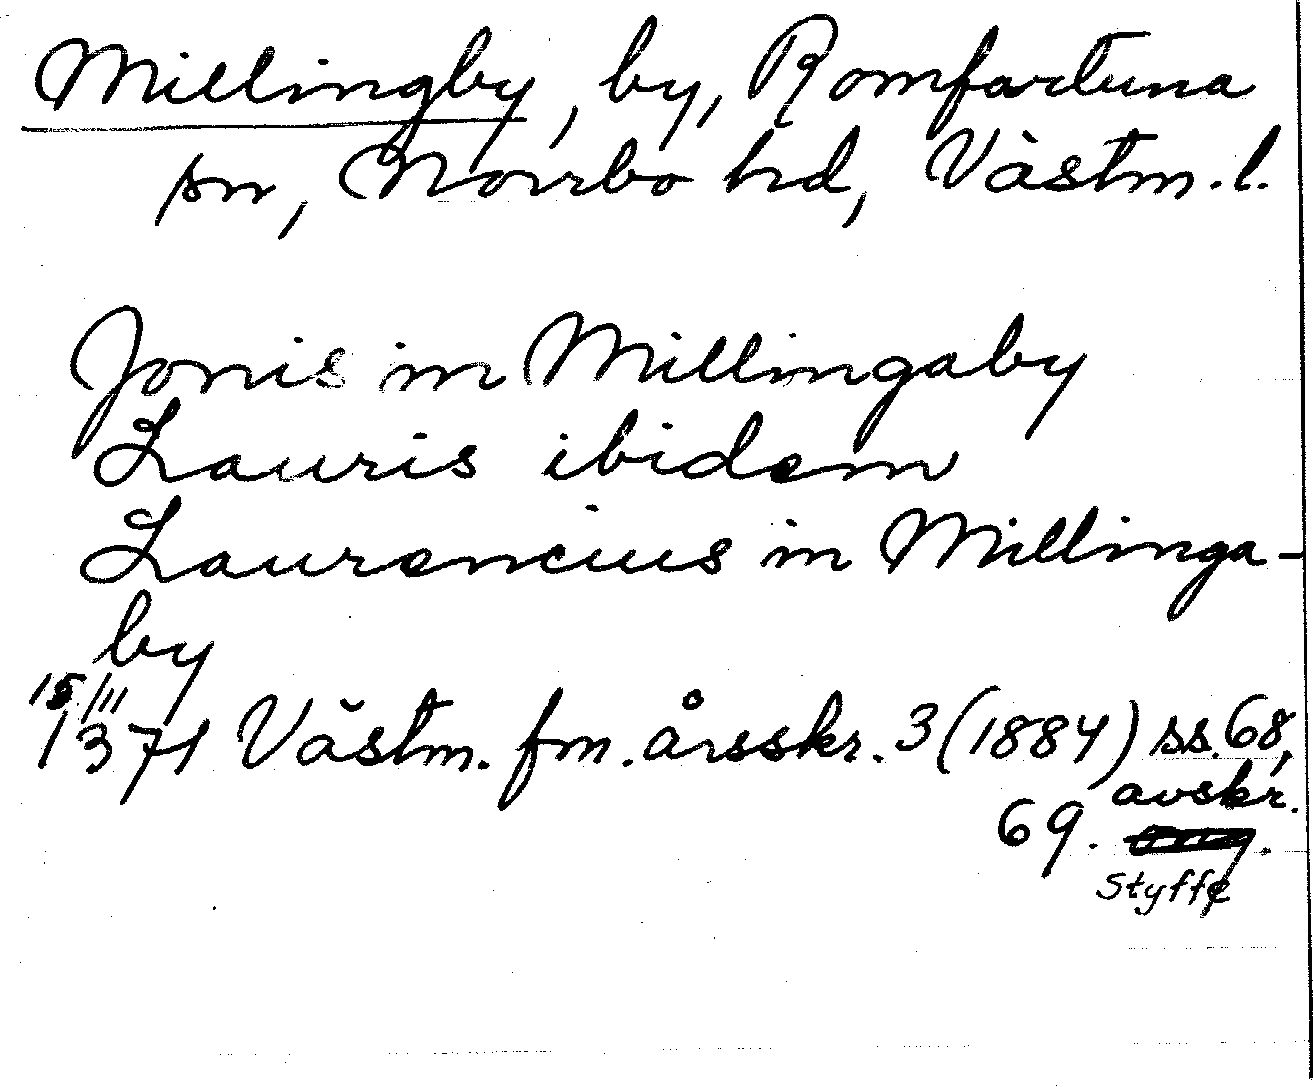 Millingby, by, Romfartuna
sn, Norrbo hd, Västm. l.
Jonis in Millingaby
Lauris ibidem
Laurencius in Millinga-
by
15/III
1371 Västm. fm. årsskr. 3 (1884) ss. 68,
avskr.
69.
Styffe